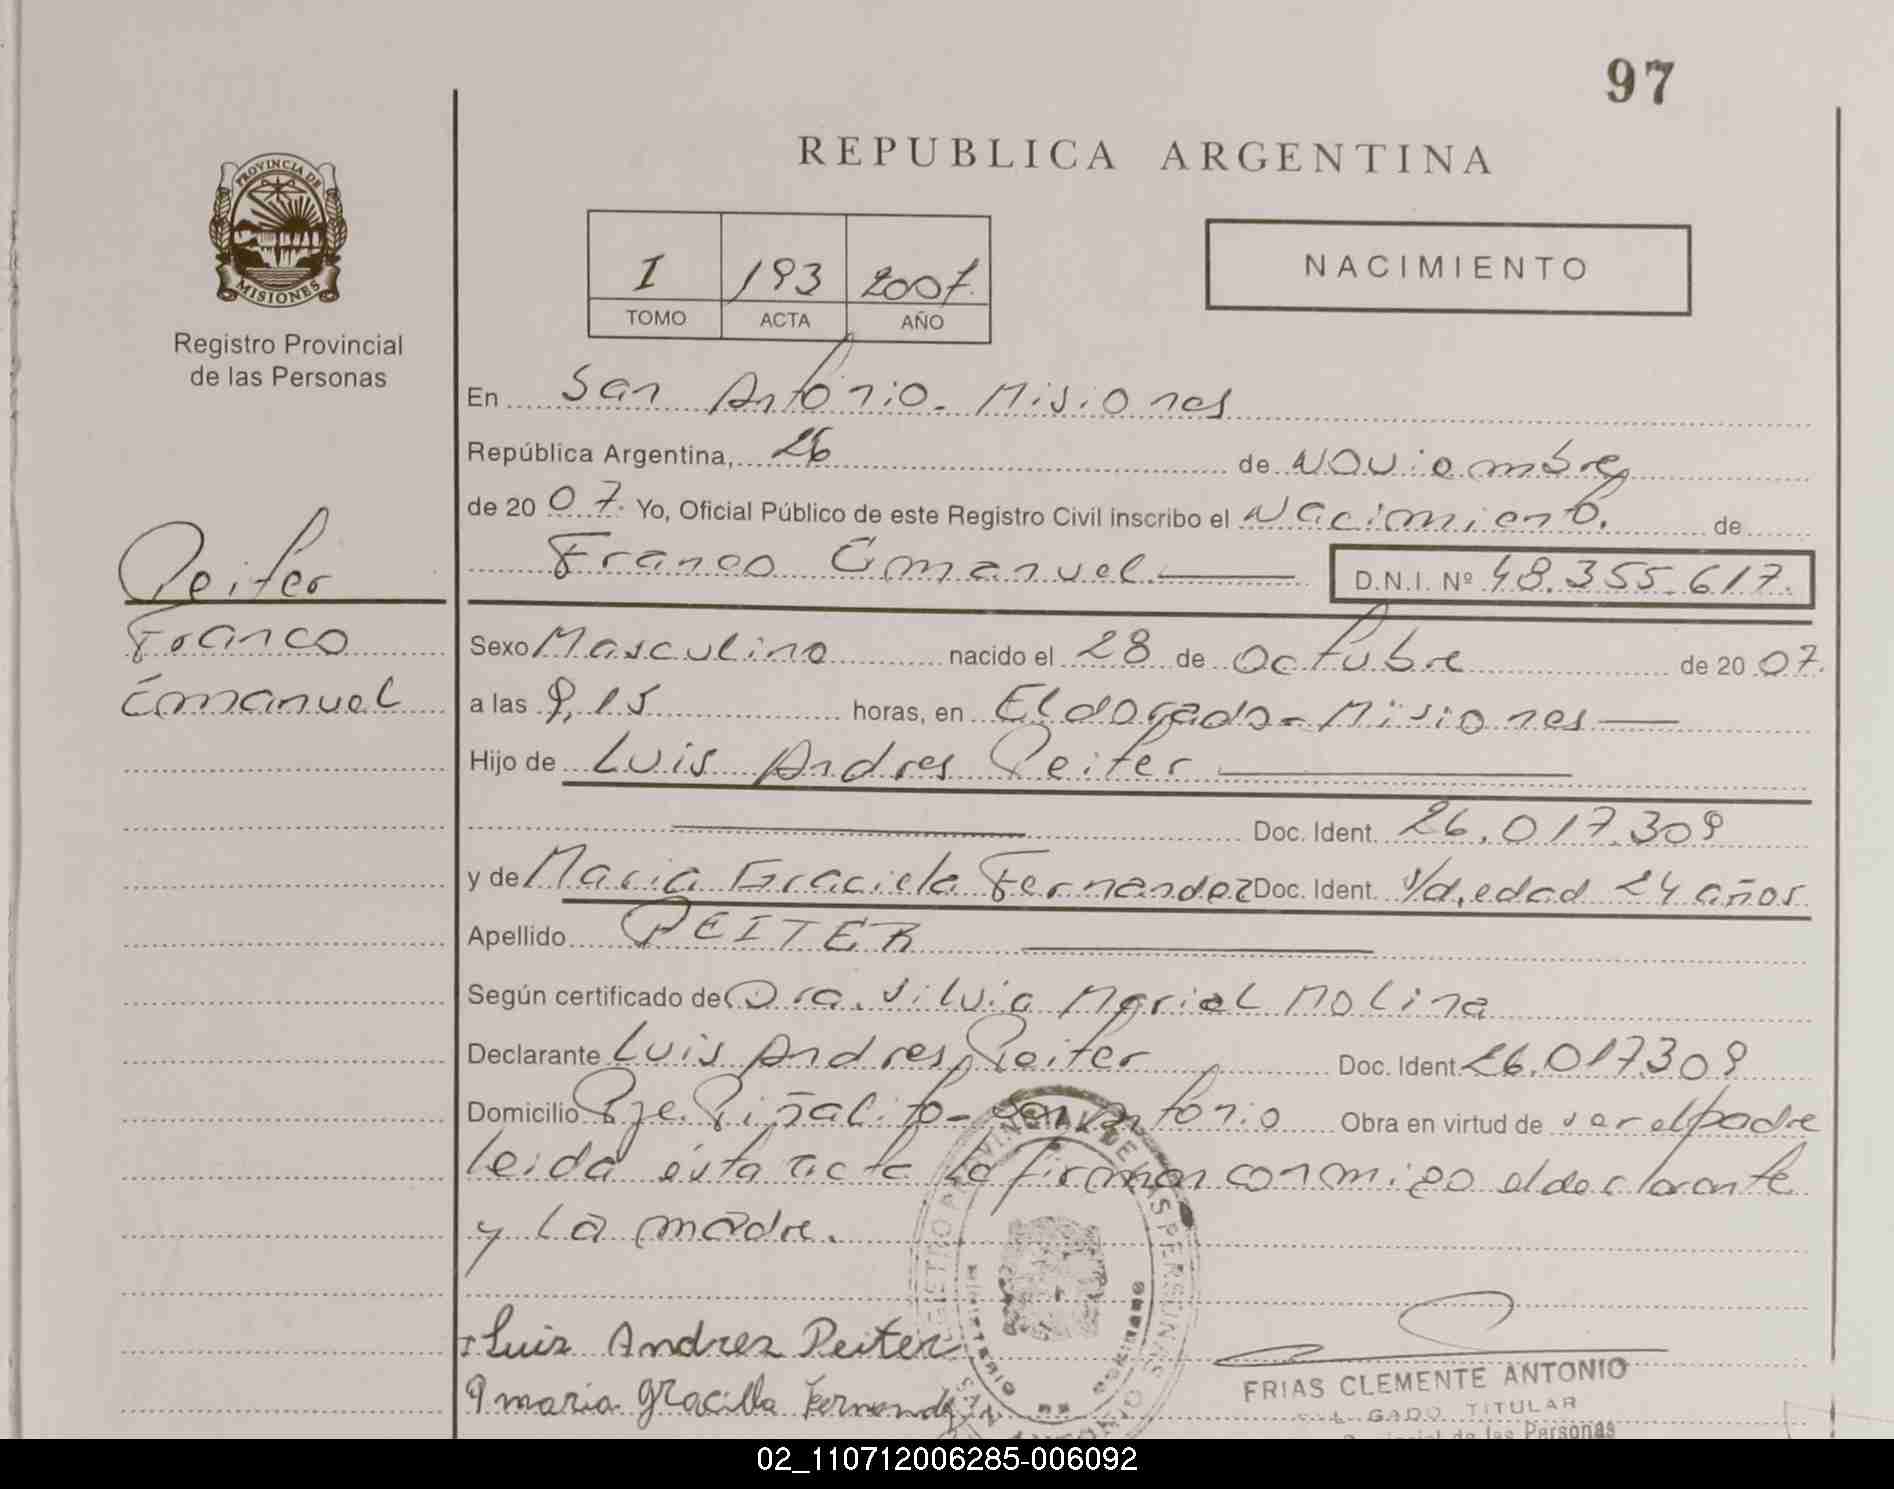 97
REPUBLICA ARGENTINA
PROVINCIA DE
MISIONES
Registro Provincial
de las Personas
I 193 2007.
TOMO ACTA AÑO
NACIMIENTO
En San Antonio. Misiones
República Argentina, 26 de Noviembre
de 20 07. Yo, Oficial Público de este Registro Civil inscribo el Nacimiento. de
Franco Emanuel D.N.I. Nº 48.355.617.
Peiter
Franco
Emanuel
Sexo Masculino nacido el 28 de Octubre de 20 07.
a las 9,15 horas, en Eldorado - Misiones
Hijo de Luis Andres Peiter
Doc. Ident. 26.017.309
y de Maria Graciela Fernandez Doc. Ident. s/d, edad 24 años
Apellido PEITER
Según certificado de Dra. Silvia Mariel Molina
Declarante Luis Andres Peiter Doc. Ident 26.017.309
Domicilio Pje. Piñalito - San Antonio Obra en virtud de ser el padre
leida ésta acta la firman conmigo el declarante
y la madre.
Luis Andres Peiter
maria Fernandez
FRIAS CLEMENTE ANTONIO
TITULAR
de las Personas
02_110712006285-006092